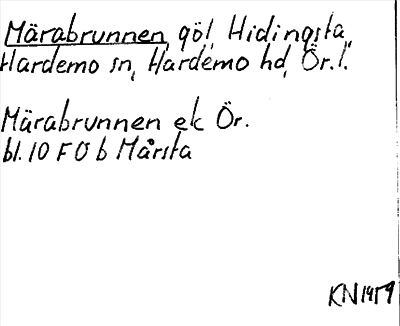 Märabrunnen, göl, Hidingsta,
Hardemo sn, Hardemo hd, Ör. l.
Märabrunnen ek Ör.
bl. 10 F Ö b Mårsta
KN 1959